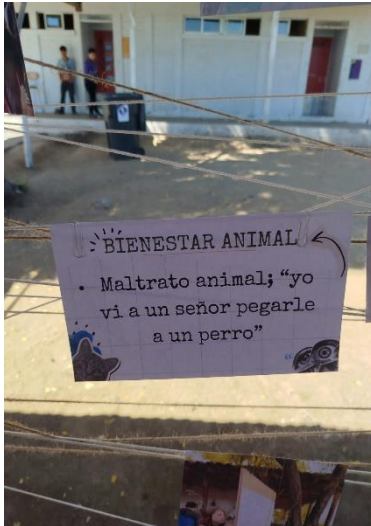 BIENESTAR ANIMAL
• Maltrato animal; “yo
vi a un señor pegarle
a un perro”